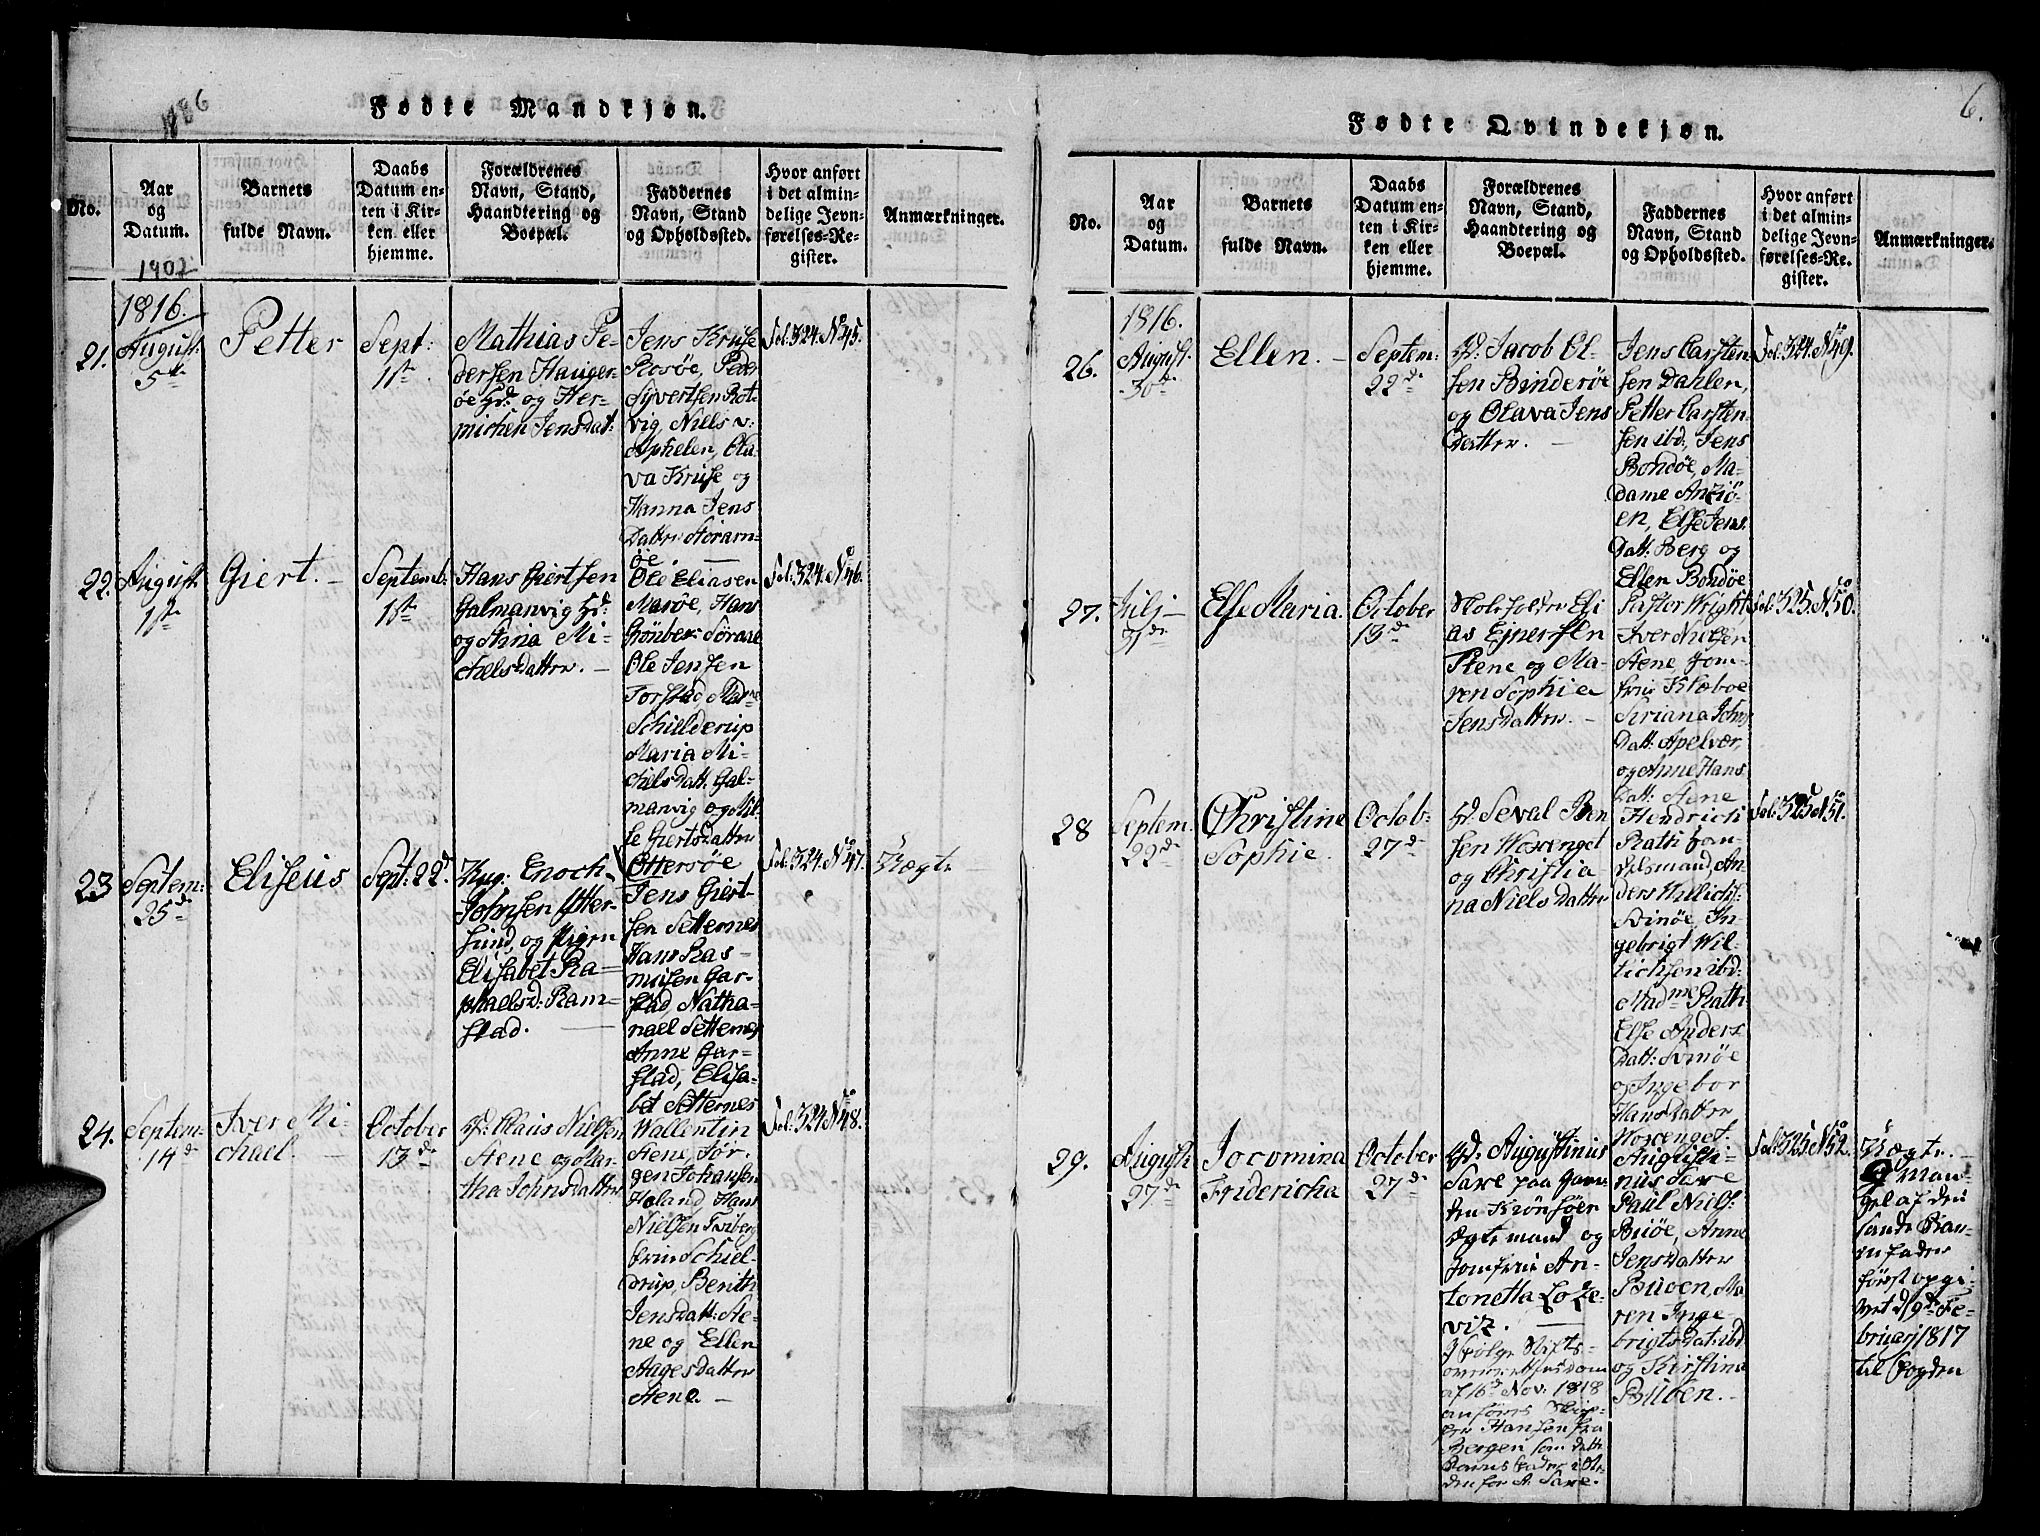 Fødte Mandkjøn.
No.
Aar
og
Datum.
Barnets
fulde Navn.
Daabs
Datum en-
ten i Kir-
ken eller
hjemme.
Forældrenes
Navn, Stand,
Haandtering og
Boepæl.
Faddernes
Navn, Stand
og Opholdssted.
Hvor anført
i det almin-
delige Jevn-
førelses-Re-
gister.
Anmærkninger.
1902
1816.
21.
August
5te
Petter
Sept:
1ste
Mathias Pe-
dersen Hauger-
øe Gd: og Her-
michen Jensdat:
Jens Kruse
Rosøe, Peder
Syvertsen Rot-
vig, Niels v:
Aphelen, Ola-
va Kruse og
Hanna Jens
Datter Storam-
øe.
Fol: 324. No 45.
22.
August
1ste
Giert. –
Septemb:
1ste
Hans Giertsen
Galmanvig Gd:
og Stina Mi-
chelsdatter. –
Ole Eliasen
Marøe, Hans
Grönber: Sörare
Ole Jensen
Torstad, Madme
Schielderup
Maria Mi-
chelsdatt: Gal-
manvig og Mil-
le Giertsdatter
Ottersøe
Fol: 324. No 46.
23
Septem:
25de
Eliseus
Sept: 22d
Ung: Enoch
Johnsen Otter-
sund, og Pigen
Elisabet Ra-
phaelsd: Ram-
stad.
Jens Giert-
sen Setternes
Hans Ras-
musen Gar-
stad, Natha-
nael Setternes
Anne Gar-
stad, Elisa-
bet Setternes
Fol: 324. No 47.
Uægte –
24.
Septem-
14d
Iver Mi-
chael. –
October
13de
Gd: Claus Nielsen
Stene og Mar-
tha Johnsdatter
Wallentin
Stene, Jør-
gen Johansen
Høland, Hans
Nielsen Friberg
Frue Schiel-
drup, Berith
Jensdatt: Ste-
ne og Ellen
Aagesdatter
Stene. –
Fol: 324 No 48.
6.
Fødte Qvindekjøn.
No.
Aar
og
Datum.
Barnets
fulde Navn.
Daabs
Datum en-
ten i Kir-
ken eller
hjemme.
Forældrenes
Navn, Stand,
Haandtering og
Boepæl.
Faddernes
Navn, Stand
og Opholdssted.
Hvor anført
i det almin-
delige Jevn-
førelses-Re-
gister.
Anmærkninger.
1816.
26.
August.
30te
Ellen. –
Septem:
22de
Gd: Jacob Ol-
sen Binderøe
og Olava Jens
datter. –
Jens Carsten
sen Dahlen,
Petter Carsten
sen ibd: Jens
Bondøe, Ma-
dame Anziö-
en, Else Jens
Datt: Berg og
Ellen Bondøe
Fol: 324. No 49.
27.
Julj –
31de
Else Maria.
October
13de
Eli
as Ejnersen
Stene og Ma-
ren Sophie
Jensdatter. –
Pastor Wright,
Iver Nielsen
Stene, Jom-
frue Klæboe
Siriana Johns
Datt: Apelvær,
og Anne Hans
Datt: Stene
Fol: 325. No 50.
28
Septem.
22de
Christine
Sophie.
Octob:
27de
Gd: Seval Ben
sen Woxenget
og Christia-
na Niels datter
Hendrich
Rath
Svinøe, In-
gebrigt Wil-
lichsen ibd:
Madme Rath
Else Anders
Datt: Svinøe
og Ingebor
Hansdatter
Woxenget.
Fol: 325 No 51.
29.
August
27de
Jocomina
Fridericha
October
27de
Gd: Augustinus
Saxe paa Gaar-
den Krönsöen
og
Jomfrue An-
tonetta Loze-
viz.
Ifølge Stifts-
af 16d Nov: 1818
anføres Skip-
per Hansen fra
Bergen som dette
Barns Fader i Ste-
den for A: Saxe.
Augusti-
nus Saxe
Paul Niels:
Buøe, Anne
Jensdatter
Buøen, Ma
ren Inge-
brigtsdat: ibd
og Kirstina
Buöen.
Fol: 325. No 52.
Uægte. –
Man-
gel af den
sande Bar-
nefader
først opgi-
vet d 9de Fe-
bruarj 1817
til Fogden